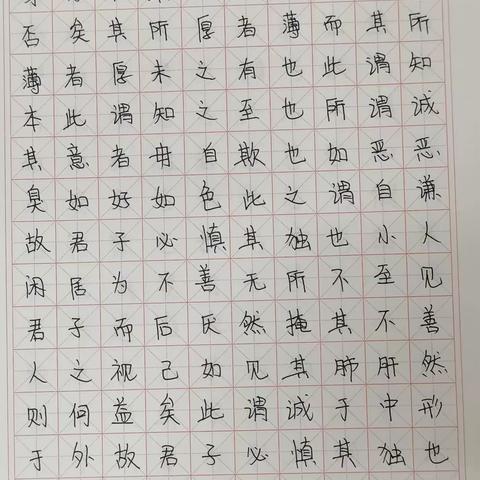 否矣其所厚者薄而其所
薄者厚未之有也此谓知
本此谓知之至也所谓诚
其意者毋自欺也如恶恶
臭如好如色此之谓自谦
故君子必慎其独也小人
闲居为不善无所不至见
君子而后厌然掩其不善
人之视己如见其肺肝然
则何益矣此谓诚于中形
于外故君子必慎其独也